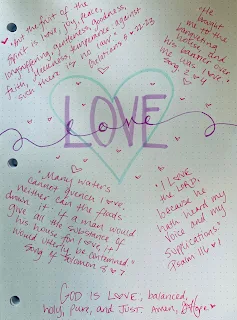 "But the fruit of the
Spirit is love, joy, peace,
longsuffering, gentleness, goodness,
faith, Meekness, temperance: against
such there is no law."
Galatians 5:22-23
"He
brought
me to the
banqueting
house, and
his banner over
me was love."
Song 2:4
LOVE
love
"Many waters
cannot quench love,
neither can the floods
drown it: if a man would
give all the substance of
his house for love, it
would utterly be contemned."
Song of Solomon 8:7
"I love
the LORD,
because he
hath heard my
voice and my
supplications."
Psalm 116:1
GOD IS LOVE, balanced,
holy, pure, and JUST. Amen,
Hope